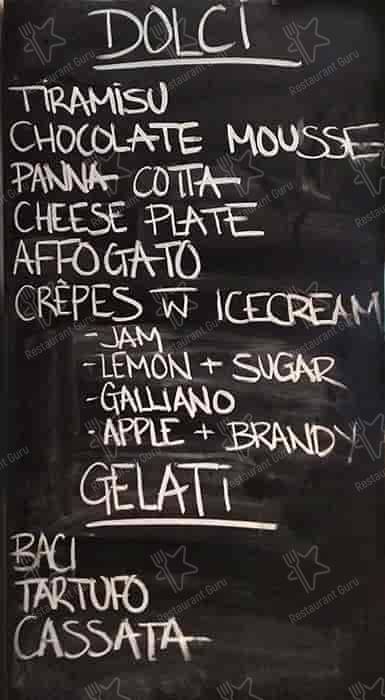 DOLCI
TIRAMISU
CHOCOLATE MOUSSE
PANNA COTTA
CHEESE PLATE
AFFOGATO
CRÊPES W ICECREAM
-JAM
-LEMON + SUGAR
-GALLIANO
-APPLE + BRANDY
GELATI
BACI
TARTUFO
CASSATA
Restaurant Guru